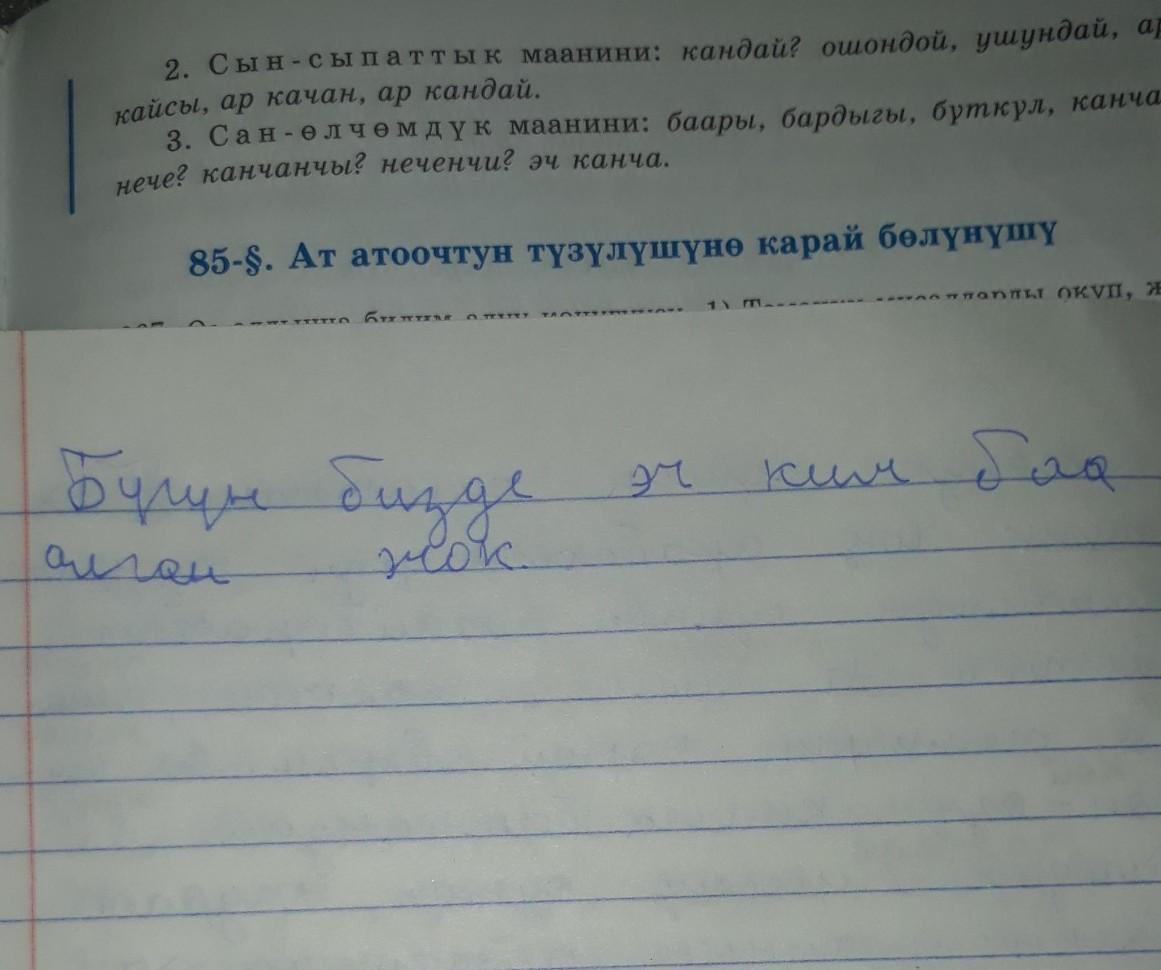 2. Сын-сыпаттык маанини: кандай? ошондой, ушундай, ар
кайсы, ар качан, ар кандай.
3. Сан-өлчөмдүк маанини: баары, бардыгы, бүткүл, канча
нече? канчанчы? неченчи? эч канча.
85-§. Ат атоочтун түзүлүшүнө карай бөлүнүшү
окуп,
Бүгүн бизде эч ким баа
алган жок.